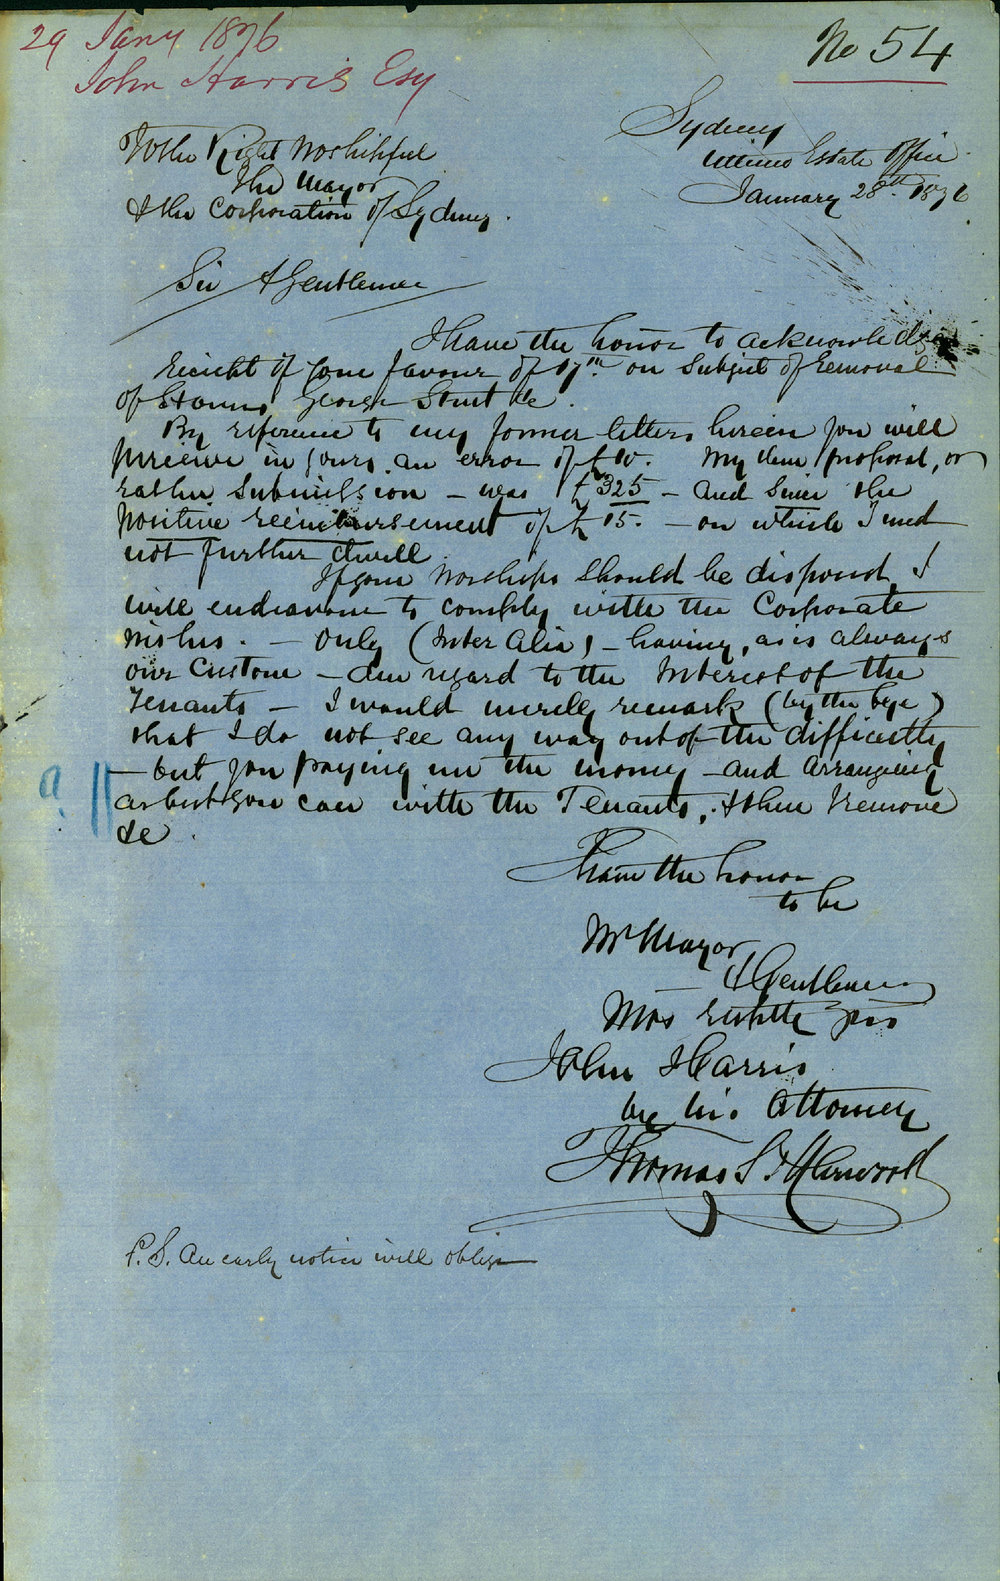 29 Jany 1876
John Harris Esq
No 54
Sydney
Ultimo Estate Office
January 28th 1876
To the Right Worshipful
The Mayor
& the Corporation of Sydney.
Sir & Gentlemen
I have the honor to acknowledge
receipt of your favour of 17th on subject of removal
of George Street &c.
By reference to my former letters herein you will
perceive in yours an error of £10. My then proposal, or
rather submission – was £325 – and since the
positive reimbursement of £15. – on which I need
not further dwell
If your Worships should be disposed I
will endeavour to comply with the Corporate
wishes. – Only (Inter Alia) – having, as is always
our custom – due regard to the Interest of the
Tenants – I would merely remark (by the bye)
that I do not see any way out of the difficulty
– but you paying me the money – and arranging
as best you can with the Tenants, & then remove
&c.
I have the honor
to be
Mr Mayor
& Gentlemen
John Harris
by his Attorney
Thomas
P.S. An early notice will oblige